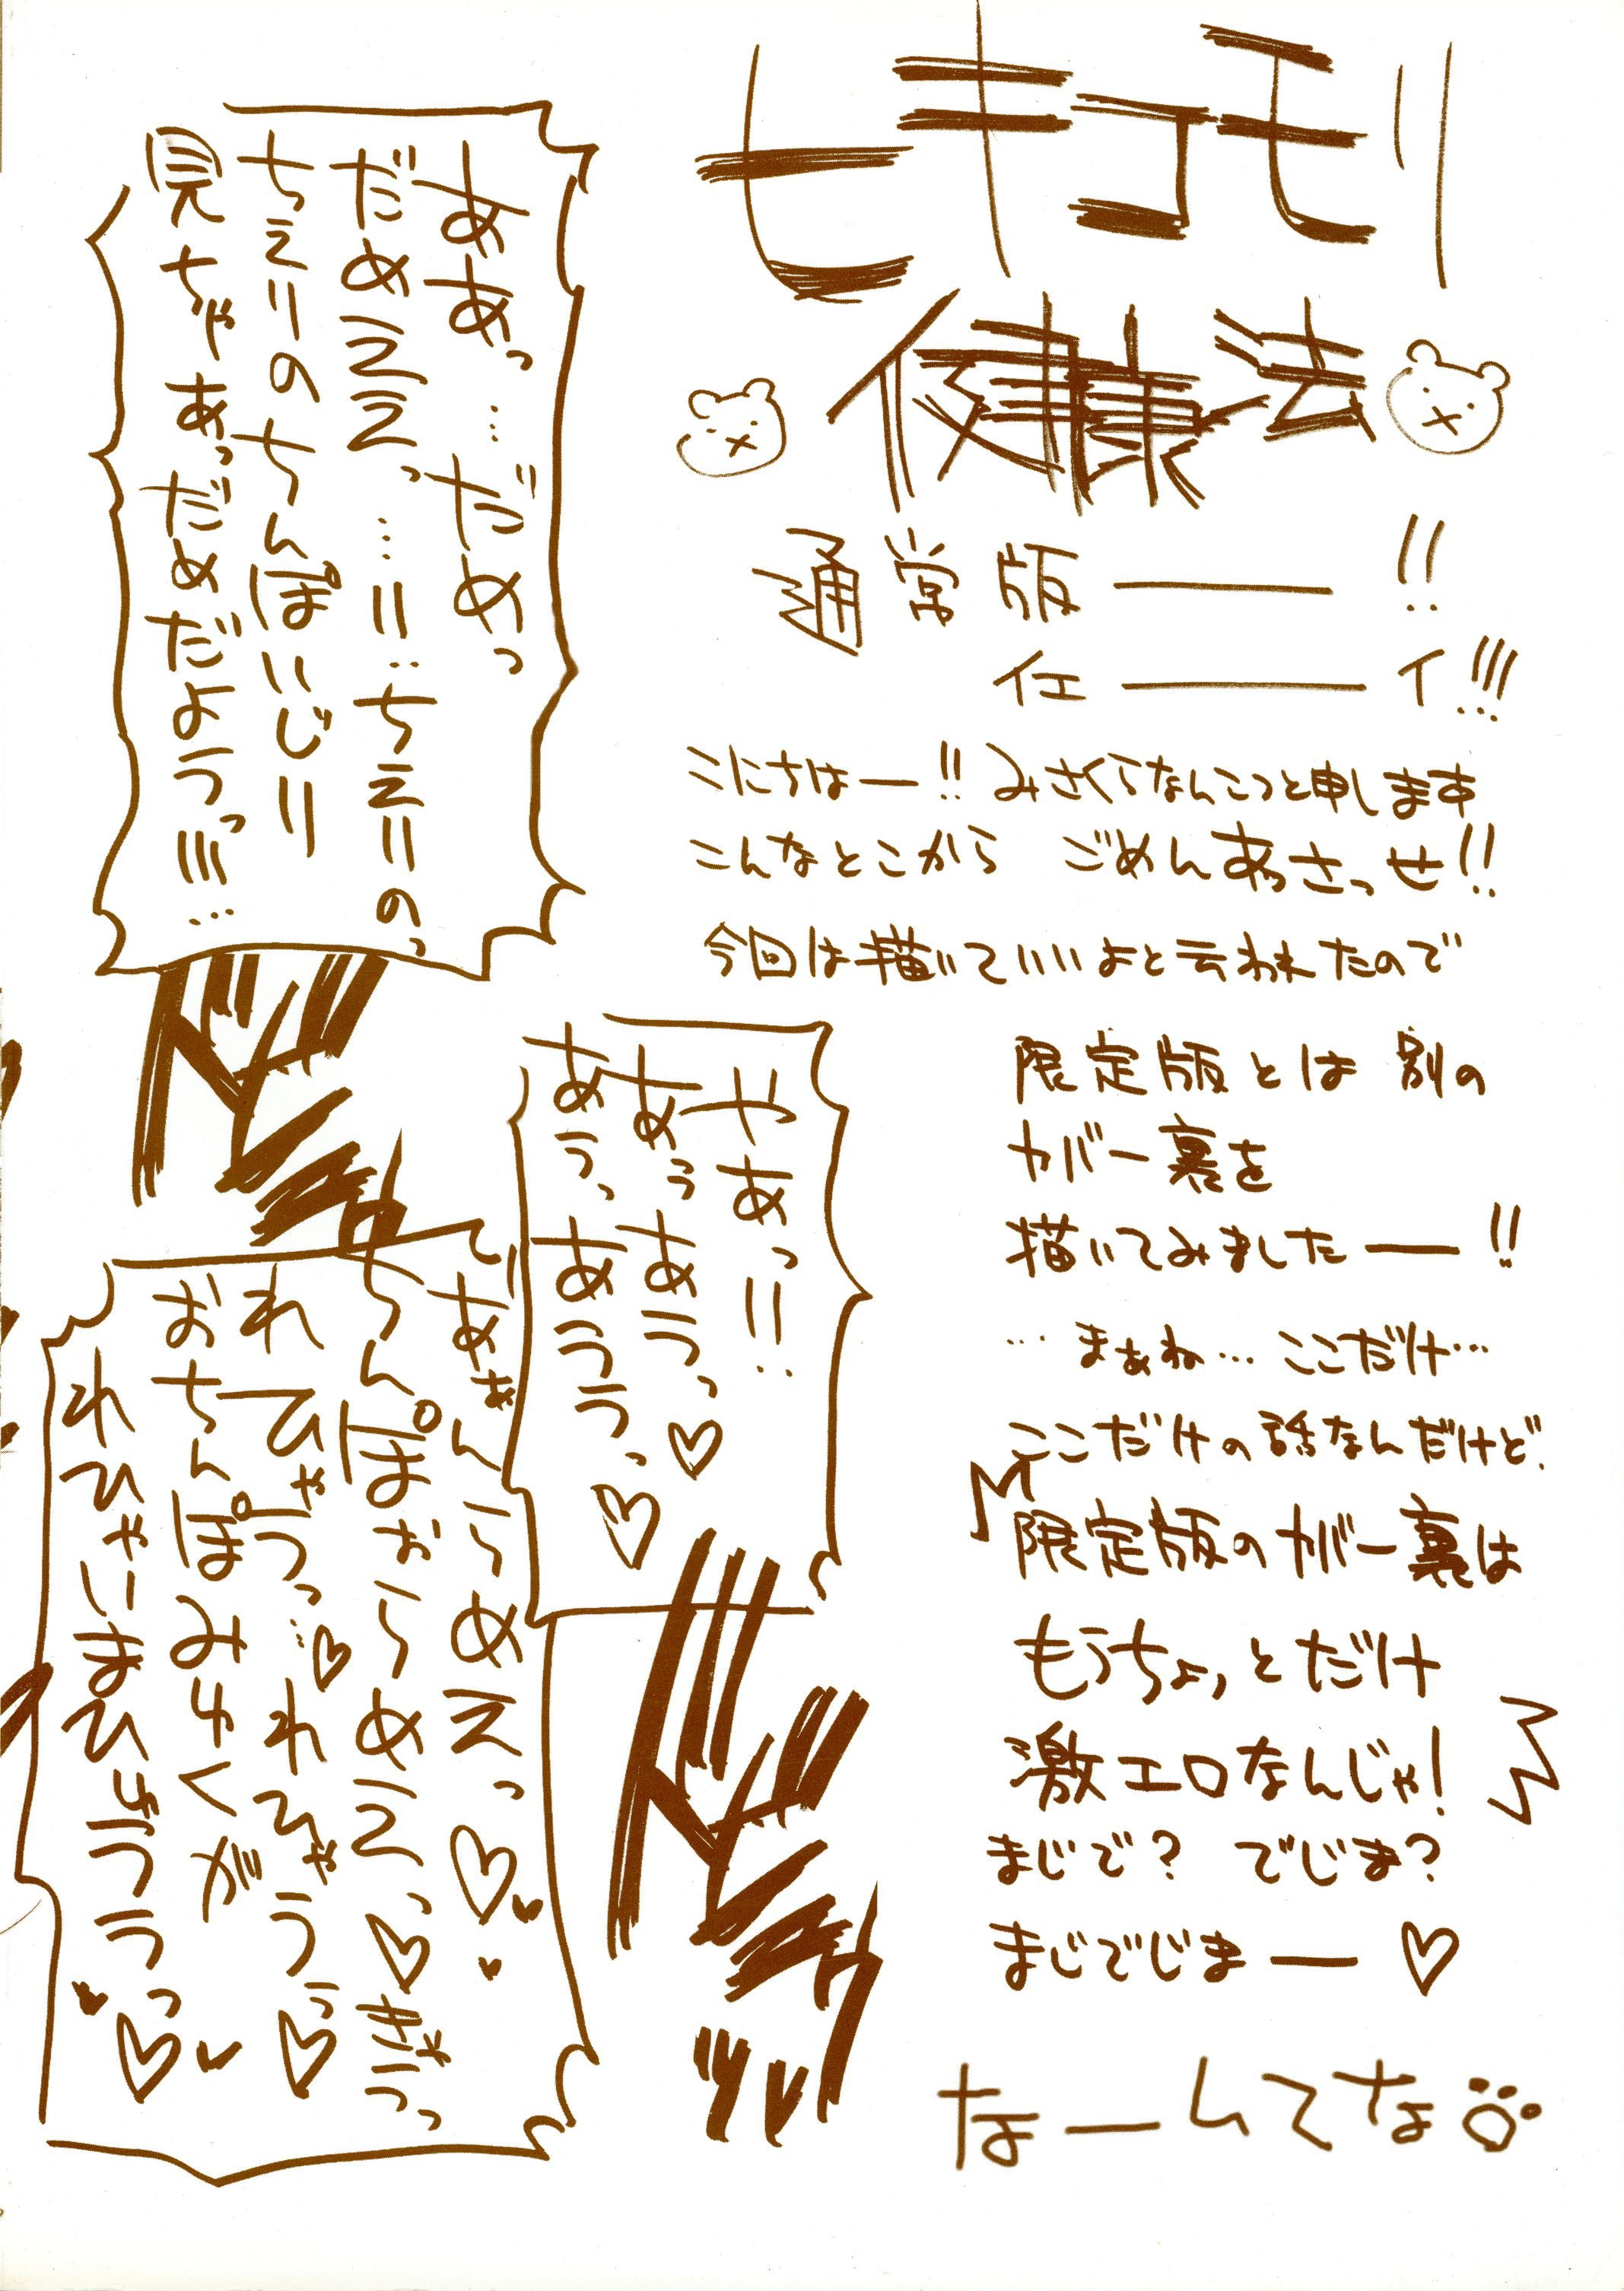 ヒキコモリ
健康法
通常版――!!
イエ――イ!!!
こにちはー!!みさくらなんこつと申します
こんなとこから ごめんあさっせ!!
今回は描いていいよと云われたので
限定版とは別の
カバー裏を
描いてみましたー!!
…まぁね…ここだけ…
ここだけの話なんだけど
限定版のカバー裏は
もうちょっとだけ
激エロなんじゃ!
まじで? でじま?
まじでじまー♡
なーんてな
ああっ…だめっ
だめえええっ…!!…ちえりのっ
ちえりのちんぽいじり
見ちゃあっだめだようっ!!!…
やあっ!!…
あぅっあうっ♡
あうっあううっ♡
らめえっ♡
ちんぽぉらめえっ♡きゃうっ
れひゃうっ…♡れひゃうっ♡
おちんぽみるくが